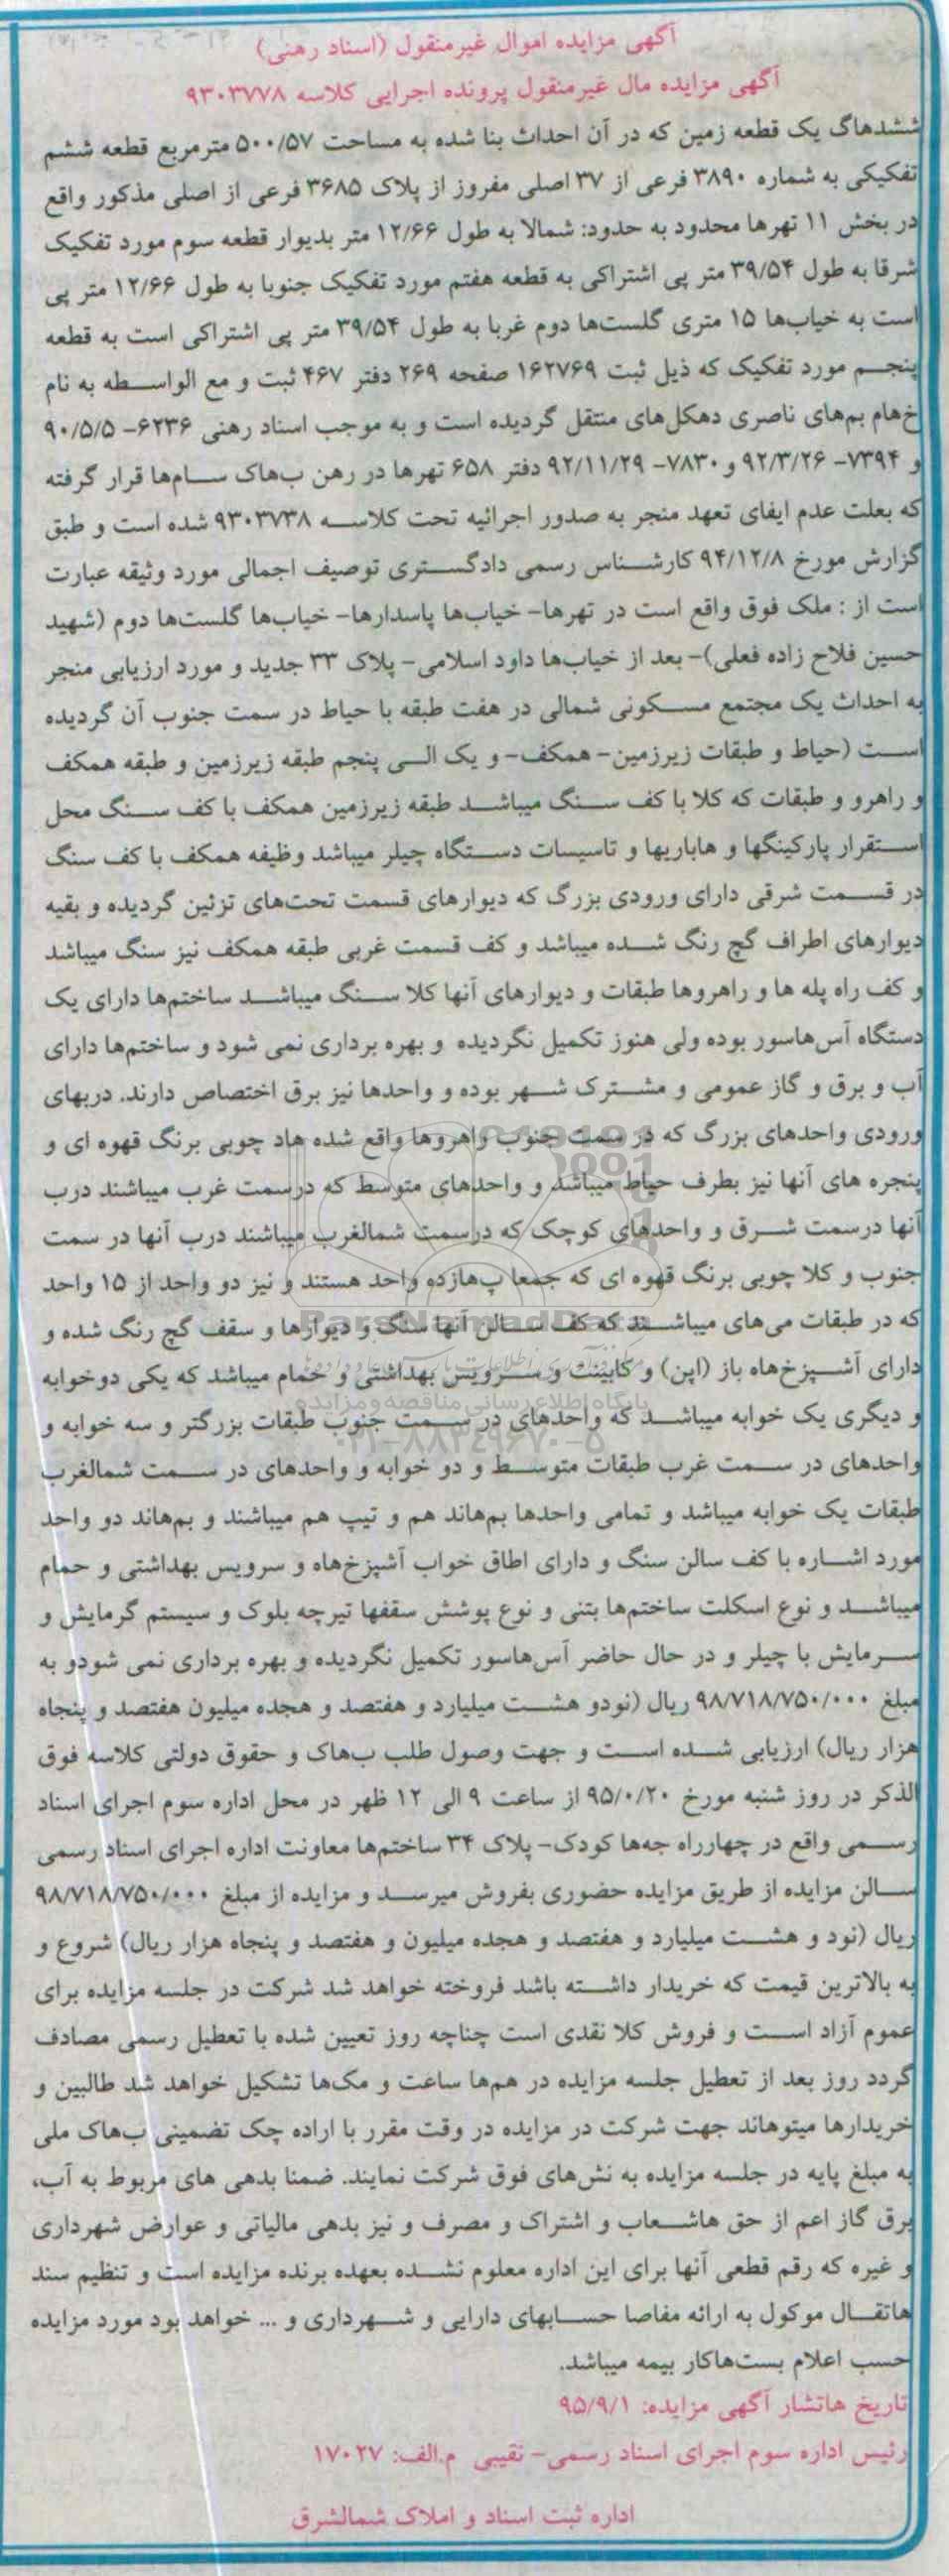 آگهی مزایده اموال غیرمنقول (اسناد رهنی)
آگهی مزایده مال غیرمنقول پرونده اجرایی کلاسه ۹۳۰۳۷۷۸
ششدهاگ یک قطعه زمین که در آن احداث بنا شده به مساحت ۵۰۰/۵۷ مترمربع قطعه ششم
تفکیکی به شماره ۳۸۹۰ فرعی از ۳۷ اصلی مفروز از پلاک ۳۶۸۵ فرعی از اصلی مذکور واقع
در بخش ۱۱ تهرها محدود به حدود: شمالا به طول ۱۲/۶۶ متر بدیوار قطعه سوم مورد تفکیک
شرقا به طول ۳۹/۵۴ متر پی اشتراکی به قطعه هفتم مورد تفکیک جنوبا به طول ۱۲/۶۶ متر پی
است به خیاب‌ها ۱۵ متری گلست‌ها دوم غربا به طول ۳۹/۵۴ متر پی اشتراکی است به قطعه
پنجم مورد تفکیک که ذیل ثبت ۱۶۲۷۶۹ صفحه ۲۶۹ دفتر ۴۶۷ ثبت و مع الواسطه به نام
خ‌هام بم‌های ناصری دهکل‌های منتقل گردیده است و به موجب اسناد رهنی ۶۲۳۶- ۹۰/۵/۵
و ۷۳۹۴- ۹۲/۳/۲۶ و ۷۸۳۰- ۹۲/۱۱/۲۹ دفتر ۶۵۸ تهرها در رهن ب‌هاک سام‌ها قرار گرفته
که بعلت عدم ایفای تعهد منجر به صدور اجرائیه تحت کلاسه ۹۳۰۳۷۳۸ شده است و طبق
گزارش مورخ ۹۴/۱۲/۸ کارشناس رسمی دادگستری توصیف اجمالی مورد وثیقه عبارت
است از : ملک فوق واقع است در تهرها- خیاب‌ها پاسدارها- خیاب‌ها گلست‌ها دوم (شهید
حسین فلاح زاده فعلی)- بعد از خیاب‌ها داود اسلامی- پلاک ۳۳ جدید و مورد ارزیابی منجر
به احداث یک مجتمع مسکونی شمالی در هفت طبقه با حیاط در سمت جنوب آن گردیده
است (حیاط و طبقات زیرزمین- همکف- و یک الی پنجم طبقه زیرزمین و طبقه همکف
و راهرو و طبقات که کلا با کف سنگ میباشد طبقه زیرزمین همکف با کف سنگ محل
استقرار پارکینگها و هاباریها و تاسیسات دستگاه چیلر میباشد وظیفه همکف با کف سنگ
در قسمت شرقی دارای ورودی بزرگ که دیوارهای قسمت تحت‌های تزئین گردیده و بقیه
دیوارهای اطراف گچ رنگ شده میباشد و کف قسمت غربی طبقه همکف نیز سنگ میباشد
و کف راه پله ها و راهروها طبقات و دیوارهای آنها کلا سنگ میباشد ساختم‌ها دارای یک
دستگاه آس‌هاسور بوده ولی هنوز تکمیل نگردیده و بهره برداری نمی شود و ساختم‌ها دارای
آب و برق و گاز عمومی و مشترک شهر بوده و واحدها نیز برق اختصاص دارند. دربهای
ورودی واحدهای بزرگ که در سمت جنوب واهروها واقع شده هاد چوبی برنگ قهوه ای و
پنجره های آنها نیز بطرف حیاط میباشد و واحدهای متوسط که درسمت غرب میباشند درب
آنها درسمت شرق و واحدهای کوچک که درسمت شمالغرب میباشند درب آنها در سمت
جنوب و کلا چوبی برنگ قهوه ای که جمعا پ‌هازده واحد هستند و نیز دو واحد از ۱۵ واحد
که در طبقات می‌های میباشند که کف سالن آنها سنگ و دیوارها و سقف گچ رنگ شده و
دارای آشپزخ‌هاه باز (اپن) و کابینت و سرویس بهداشتی و حمام میباشد که یکی دوخوابه
و دیگری یک خوابه میباشد که واحدهای در سمت جنوب طبقات بزرگتر و سه خوابه و
واحدهای در سمت غرب طبقات متوسط و دو خوابه و واحدهای در سمت شمالغرب
طبقات یک خوابه میباشد و تمامی واحدها بم‌هاند هم و تیپ هم میباشند و بم‌هاند دو واحد
مورد اشاره با کف سالن سنگ و دارای اطاق خواب آشپزخ‌هاه و سرویس بهداشتی و حمام
میباشد و نوع اسکلت ساختم‌ها بتنی و نوع پوشش سقفها تیرچه بلوک و سیستم گرمایش و
سرمایش با چیلر و در حال حاضر آس‌هاسور تکمیل نگردیده و بهره برداری نمی شودو به
مبلغ ۹۸/۷۱۸/۷۵۰/۰۰۰ ریال (نودو هشت میلیارد و هفتصد و هجده میلیون هفتصد و پنجاه
هزار ریال) ارزیابی شده است و جهت وصول طلب ب‌هاک و حقوق دولتی کلاسه فوق
الذکر در روز شنبه مورخ ۹۵/۰/۲۰ از ساعت ۹ الی ۱۲ ظهر در محل اداره سوم اجرای اسناد
رسمی واقع در چهارراه جه‌ها کودک- پلاک ۳۴ ساختم‌ها معاونت اداره اجرای اسناد رسمی
سالن مزایده از طریق مزایده حضوری بفروش میرسد و مزایده از مبلغ ۹۸/۷۱۸/۷۵۰/۰۰۰
ریال (نود و هشت میلیارد و هفتصد و هجده میلیون و هفتصد و پنجاه هزار ریال) شروع و
به بالاترین قیمت که خریدار داشته باشد فروخته خواهد شد شرکت در جلسه مزایده برای
عموم آزاد است و فروش کلا نقدی است چناچه روز تعیین شده با تعطیل رسمی مصادف
گردد روز بعد از تعطیل جلسه مزایده در هم‌ها ساعت و مک‌ها تشکیل خواهد شد طالبین و
خریدارها میتوهاند جهت شرکت در مزایده در وقت مقرر با اراده چک تضمینی ب‌هاک ملی
به مبلغ پایه در جلسه مزایده به نش‌های فوق شرکت نمایند. ضمنا بدهی های مربوط به آب،
برق گاز اعم از حق هاشعاب و اشتراک و مصرف و نیز بدهی مالیاتی و عوارض شهرداری
و غیره که رقم قطعی آنها برای این اداره معلوم نشده بعهده برنده مزایده است و تنظیم سند
هاتقال موکول به ارائه مفاصا حسابهای دارایی و شهرداری و ... خواهد بود مورد مزایده
حسب اعلام بست‌هاکار بیمه میباشد.
تاریخ هاتشار آگهی مزایده: ۹۵/۹/۱
رئیس اداره سوم اجرای اسناد رسمی- نقیبی م.الف: ۱۷۰۲۷
اداره ثبت اسناد و املاک شمالشرق
ParsNamadData
پایگاه اطلاع رسانی مناقصه و مزایده
۰۲۱-۸۸۳۴۹۶۷۰-۵